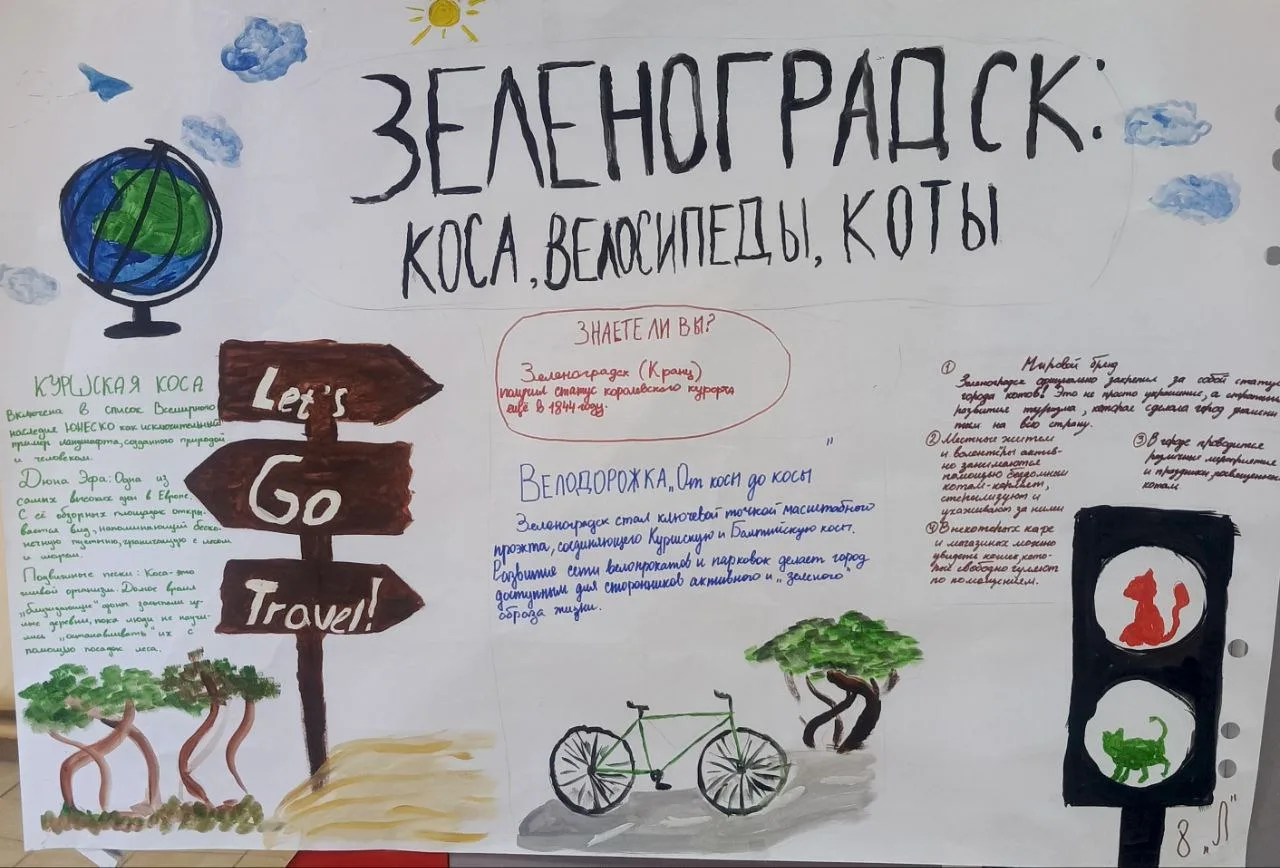 ЗЕЛЕНОГРАДСК:
КОСА, ВЕЛОСИПЕДЫ, КОТЫ
КУРШСКАЯ КОСА
Включена в список Всемирного
наследия ЮНЕСКО как исключительный
пример ландшафта, созданного природой
и человеком.
Дюна Эфа: Одна из
самых высоких дюн в Европе.
С её обзорных площадок откры-
вается вид, напоминающий беско-
нечную пустыню, граничащую с лесом
и морем.
Подвижные пески: Коса-это
живой организм. Долгое время
„блуждающие" дюны засыпали це-
лые деревни, пока люди не научи-
лись „останавливать" их с
помощью посадок леса.
Let's
Go
Travel!
ЗНАЕТЕ ЛИ ВЫ?
Зеленоградск (Кранц)
получил статус королевского курорта
ещё в 1844 году.
ВЕЛОДОРОЖКА „От косы до косы"
Зеленоградск стал ключевой точкой масштабного
проэкта, соединяющего Куршскую и Балтийскую косы.
Развитие сети велопрокатов и парковок делает город
доступным для сторонников активного и „зеленого"
образа жизни.
① Мировой бренд
Зеленоградск официально закрепил за собой статус
города котов. Это не просто украшение, а стратегия
развития туризма, которая сделала город знамени
тым на всю страну.
② Местные жители
и волонтёры актив-
но занимаются
помощью бездомным
котам-кормят,
стерилизуют и
ухаживают за ними
③ В городе проводятся
различные мероприятия
и праздники, посвященные
котам
④ В некоторых кафе
и магазинах можно
увидеть кошек, кото-
рые свободно гуляют
по помещением.
8 „Л"